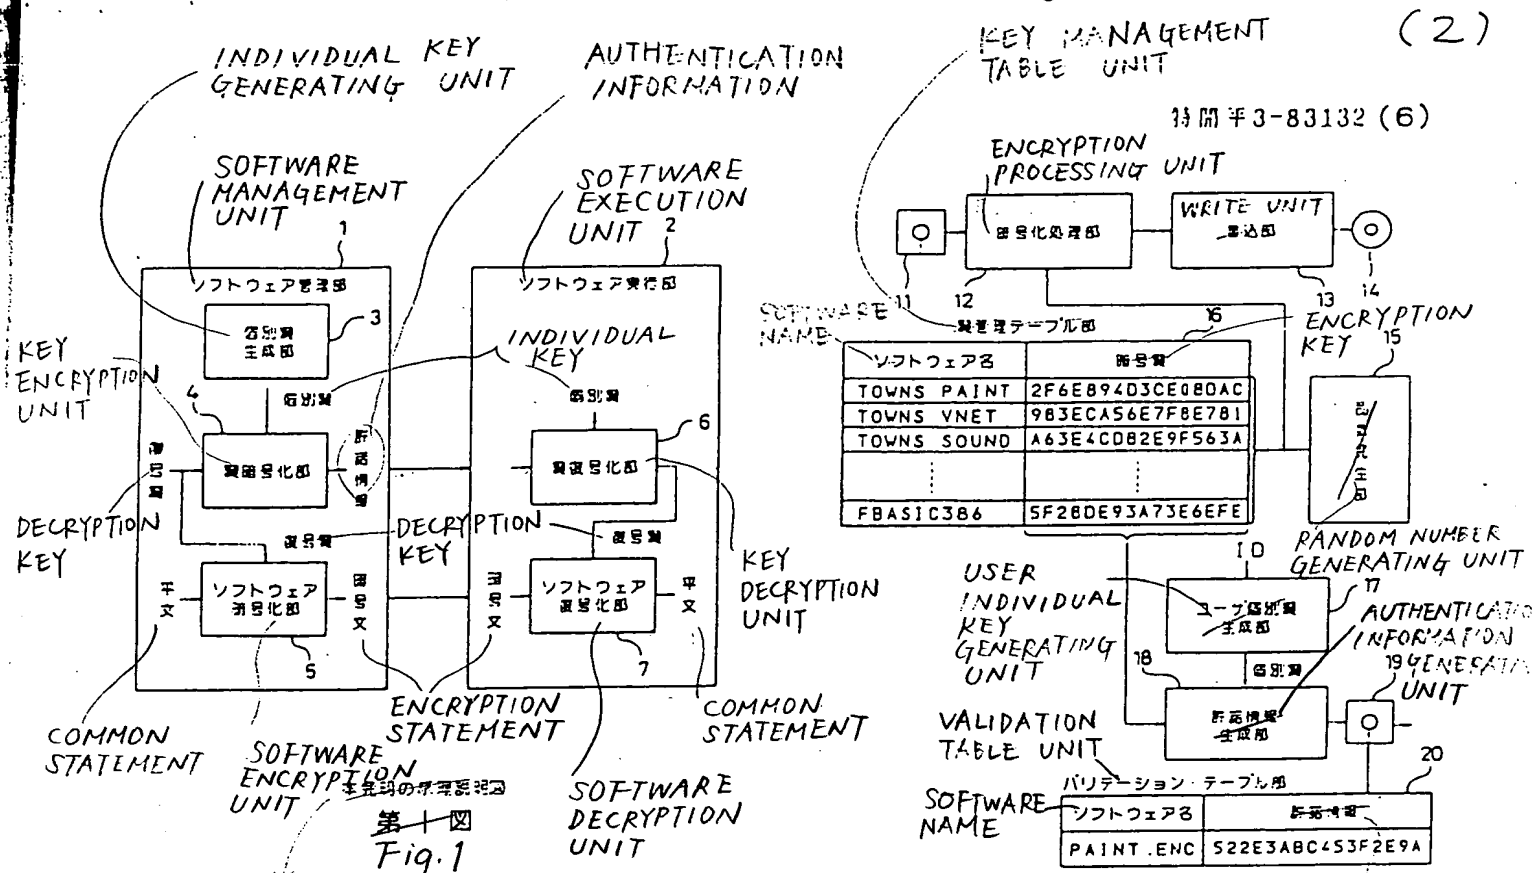 (2)
特開平3-83132 (6)
INDIVIDUAL KEY
GENERATING UNIT
AUTHENTICATION
INFORMATION
SOFTWARE
MANAGEMENT
UNIT
SOFTWARE
EXECUTION
UNIT
1
2
ソフトウェア管理部
ソフトウェア実行部
個別鍵
生成部
3
KEY
ENCRYPTION
UNIT
INDIVIDUAL
KEY
個別鍵
個別鍵
4
6
復号鍵
鍵暗号化部
許諾情報
鍵復号化部
DECRYPTION
KEY
DECRYPTION
KEY
復号鍵
復号鍵
KEY
DECRYPTION
UNIT
平文
ソフトウェア
暗号化部
暗号文
暗号文
ソフトウェア
復号化部
平文
5
7
COMMON
STATEMENT
ENCRYPTION
STATEMENT
COMMON
STATEMENT
SOFTWARE
ENCRYPTION
UNIT
SOFTWARE
DECRYPTION
UNIT
本発明の原理説明図
第1図
Fig.1
KEY MANAGEMENT
TABLE UNIT
ENCRYPTION
PROCESSING UNIT
WRITE UNIT
暗号化処理部
書込部
11
12
13
14
SOFTWARE
NAME
鍵管理テーブル部
16
ENCRYPTION
KEY
15
ソフトウェア名 暗号鍵
TOWNS PAINT 2F6E894D3CE08DAC
TOWNS VNET 983ECA56E7F8E781
TOWNS SOUND A63E4CD82E9F563A
FBASIC386 5F28DE93A73E6EFE
RANDOM NUMBER
GENERATING UNIT
ID
USER
INDIVIDUAL
KEY
GENERATING
UNIT
ユーザ個別鍵
生成部
17
個別鍵
AUTHENTICATIO
INFORMATION
GENERATIN
UNIT
18
許諾情報
生成部
19
VALIDATION
TABLE UNIT
バリデーション・テーブル部
20
SOFTWARE
NAME
ソフトウェア名 許諾情報
PAINT.ENC 522E3ABC453F2E9A